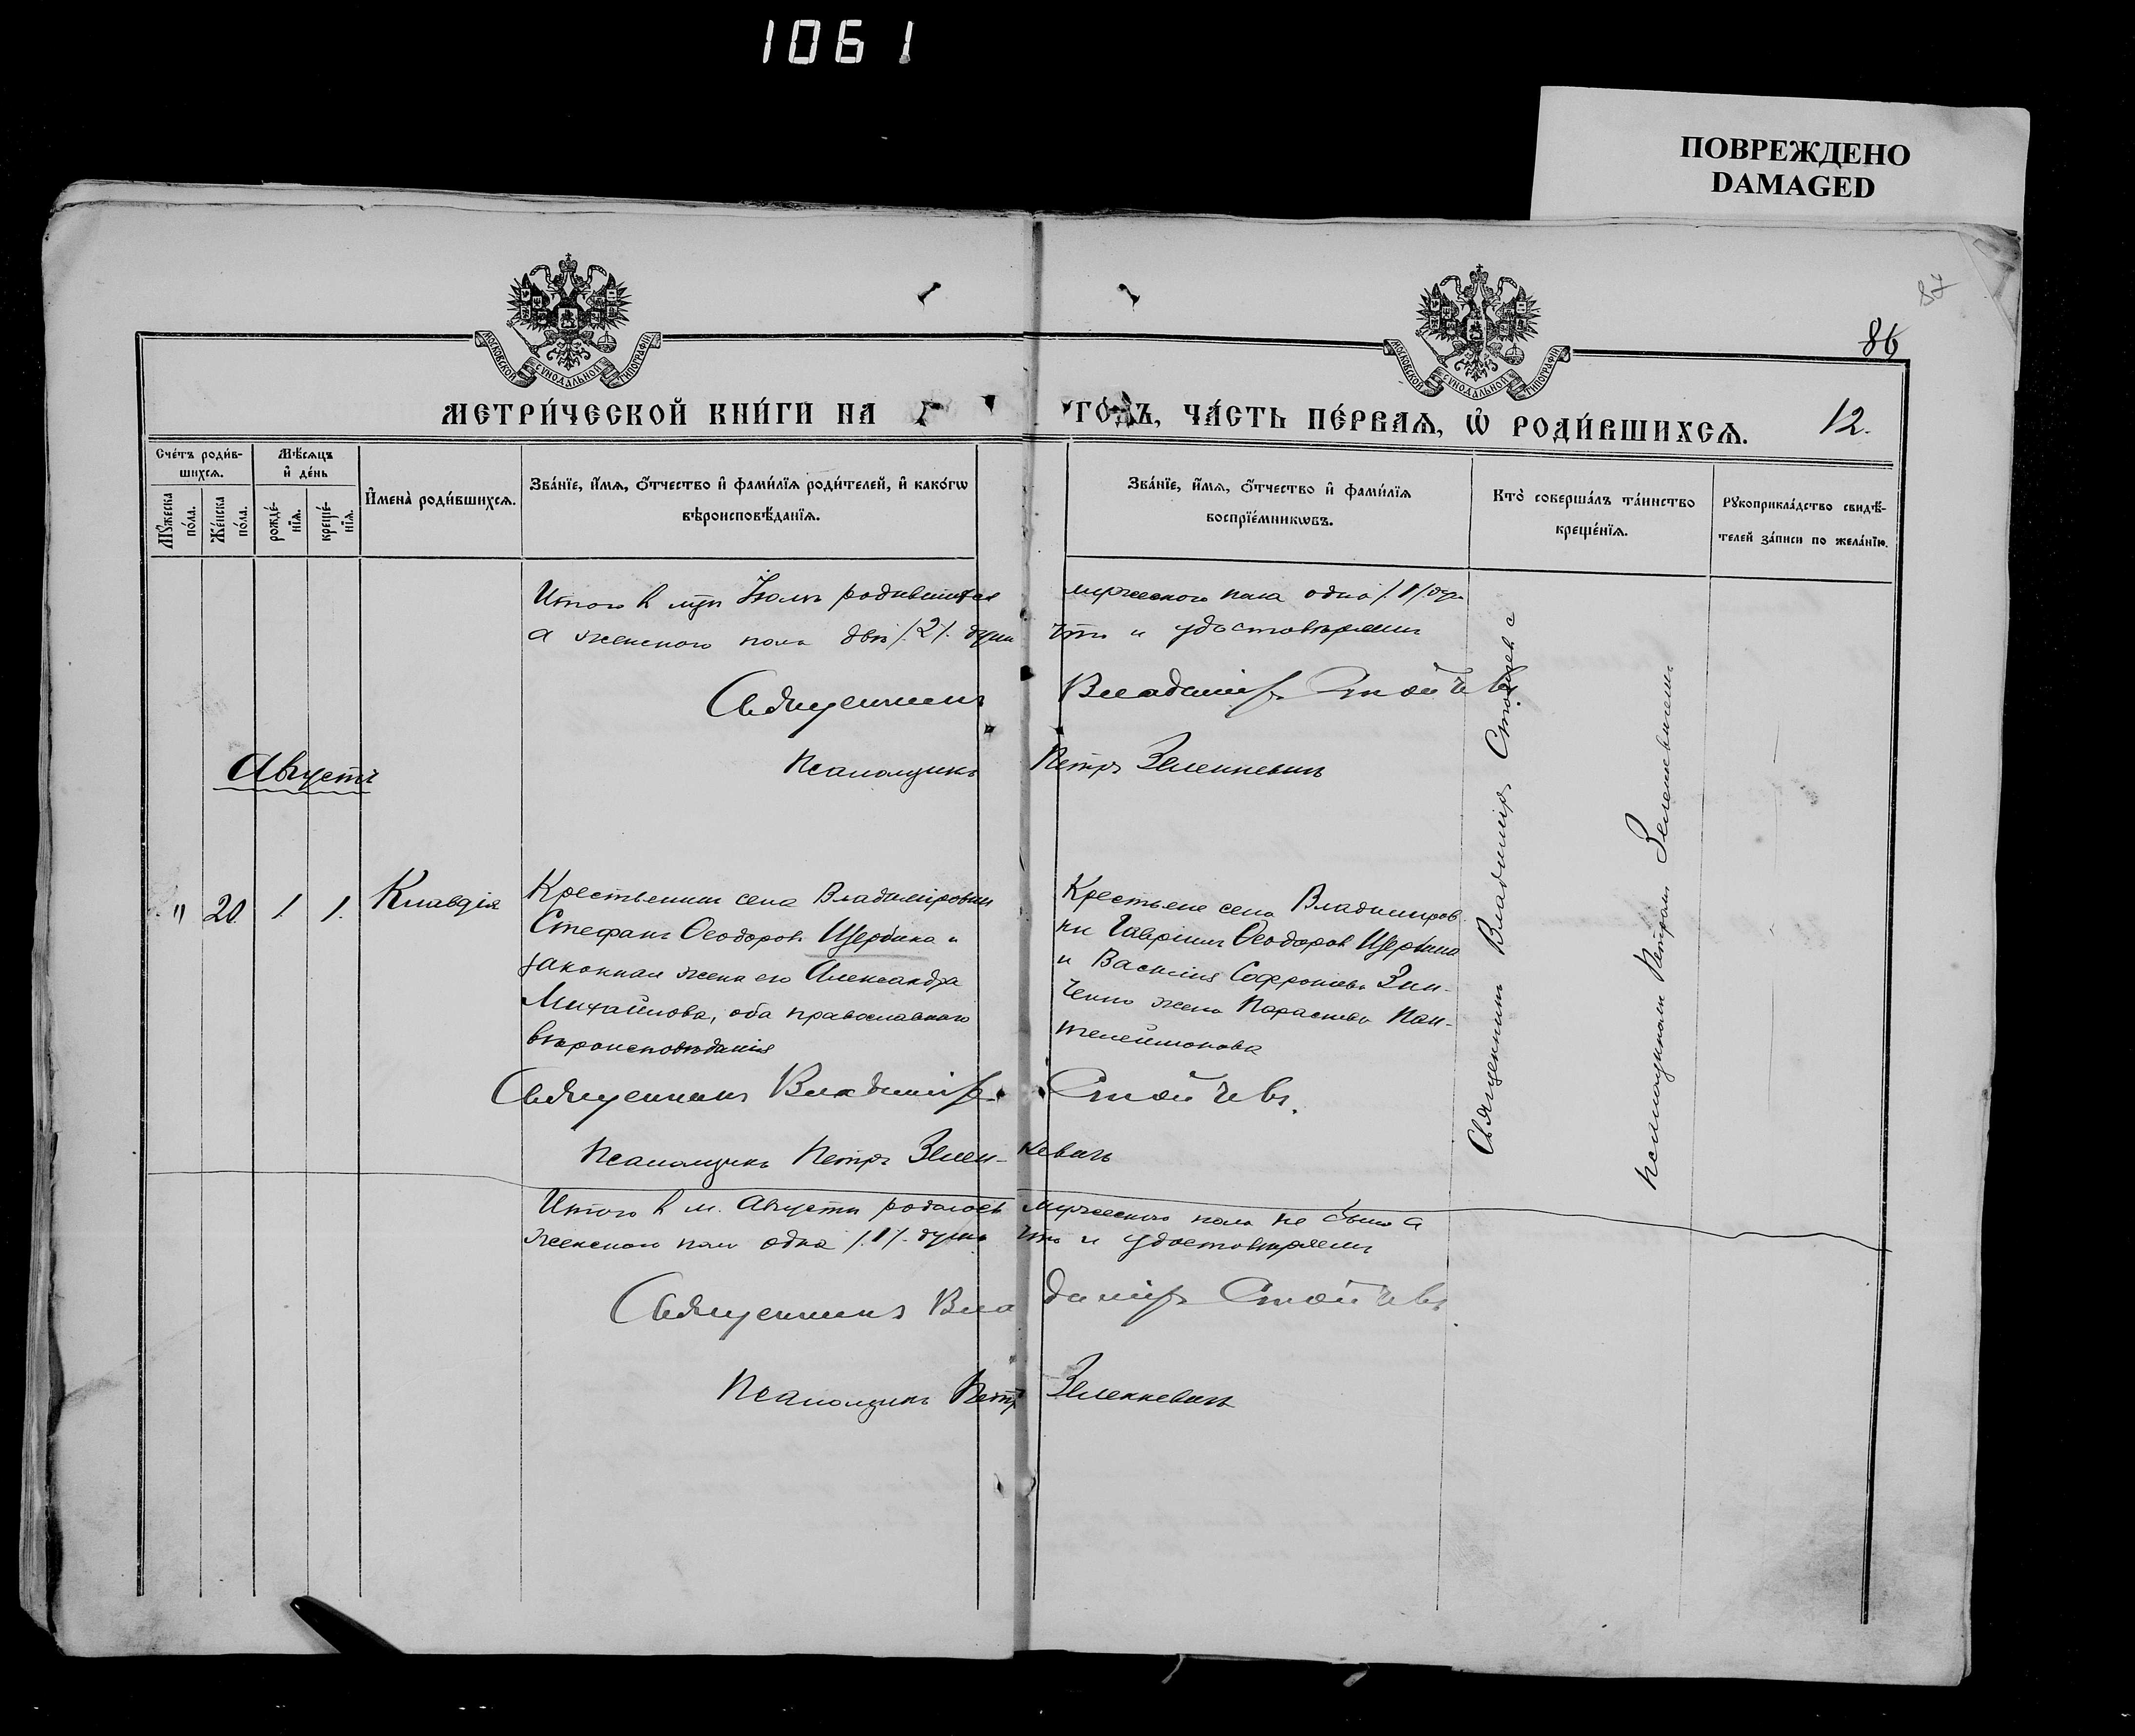 1061
ПОВРЕЖДЕНО
DAMAGED
87
86
МОСКОВСКОЙ СѴНОДАЛЬНОЙ ТИПОГРАФІИ
МОСКОВСКОЙ СѴНОДАЛЬНОЙ ТИПОГРАФІИ
МЕТРИ́ЧЕСКОЙ КНИ́ГИ НА ГО́ДЪ, ЧА́СТЬ ПЕ́РВАѦ, Ѡ҆ РОДИ́ВШИХСѦ.
12.
Сче́тъ роди́в-
шихсѧ.
Мѣ́сѧцъ
и҆ де́нь
Мꙋ́жеска
по́ла.
Же́нска
по́ла.
рожде́-
нїѧ.
креще́-
нїѧ.
И҆мена̀ роди́вшихсѧ.
Зва́нїе, и҆́мѧ, ѻ҆́тчество и҆ фами́лїѧ роди́телей, и҆ како́гѡ
вѣроисповѣ́данїѧ.
Зва́нїе, и҆́мѧ, ѻ҆́тчество и҆ фами́лїѧ
воспрїе́мникѡвъ.
Кто̀ соверша́лъ та́инство
креще́нїѧ.
Рꙋкоприкла́дство свидѣ́-
телей за́писи по жела́нїю.
Итого въ Іюлѣ родившихся мужескаго пола одна /.1/. душа
а женскаго пола двѣ /.2/. души что и удостовѣряемъ
Священникъ Владиміръ Стойчевъ
Псаломщикъ Петръ Зеленкевичъ
Августъ
" 20. 1. 1. Клавдія
Крестьянинъ села Владиміровки
Стефанъ Ѳеодоровъ Щербина и
законная жена его Александра
Михайлова, оба православнаго
вѣроисповѣданія
Крестьяне села Владиміров-
ки Гавріилъ Ѳеодоровъ Щербина
и Василія Софроніева Зин-
ченко жена Параскева Пан-
телеймонова
Священникъ Владиміръ Стойчевъ
Псаломщикомъ Петромъ Зеленкевичемъ
Священникъ Владиміръ Стойчевъ.
Псаломщикъ Петръ Зелен-кевичъ
Итого въ м. Августѣ родилось мужескаго пола не было а
женскаго пола одна /.1/. душа что и удостовѣряемъ
Священникъ Владиміръ Стойчевъ.
Псаломщикъ Петръ Зеленкевичъ